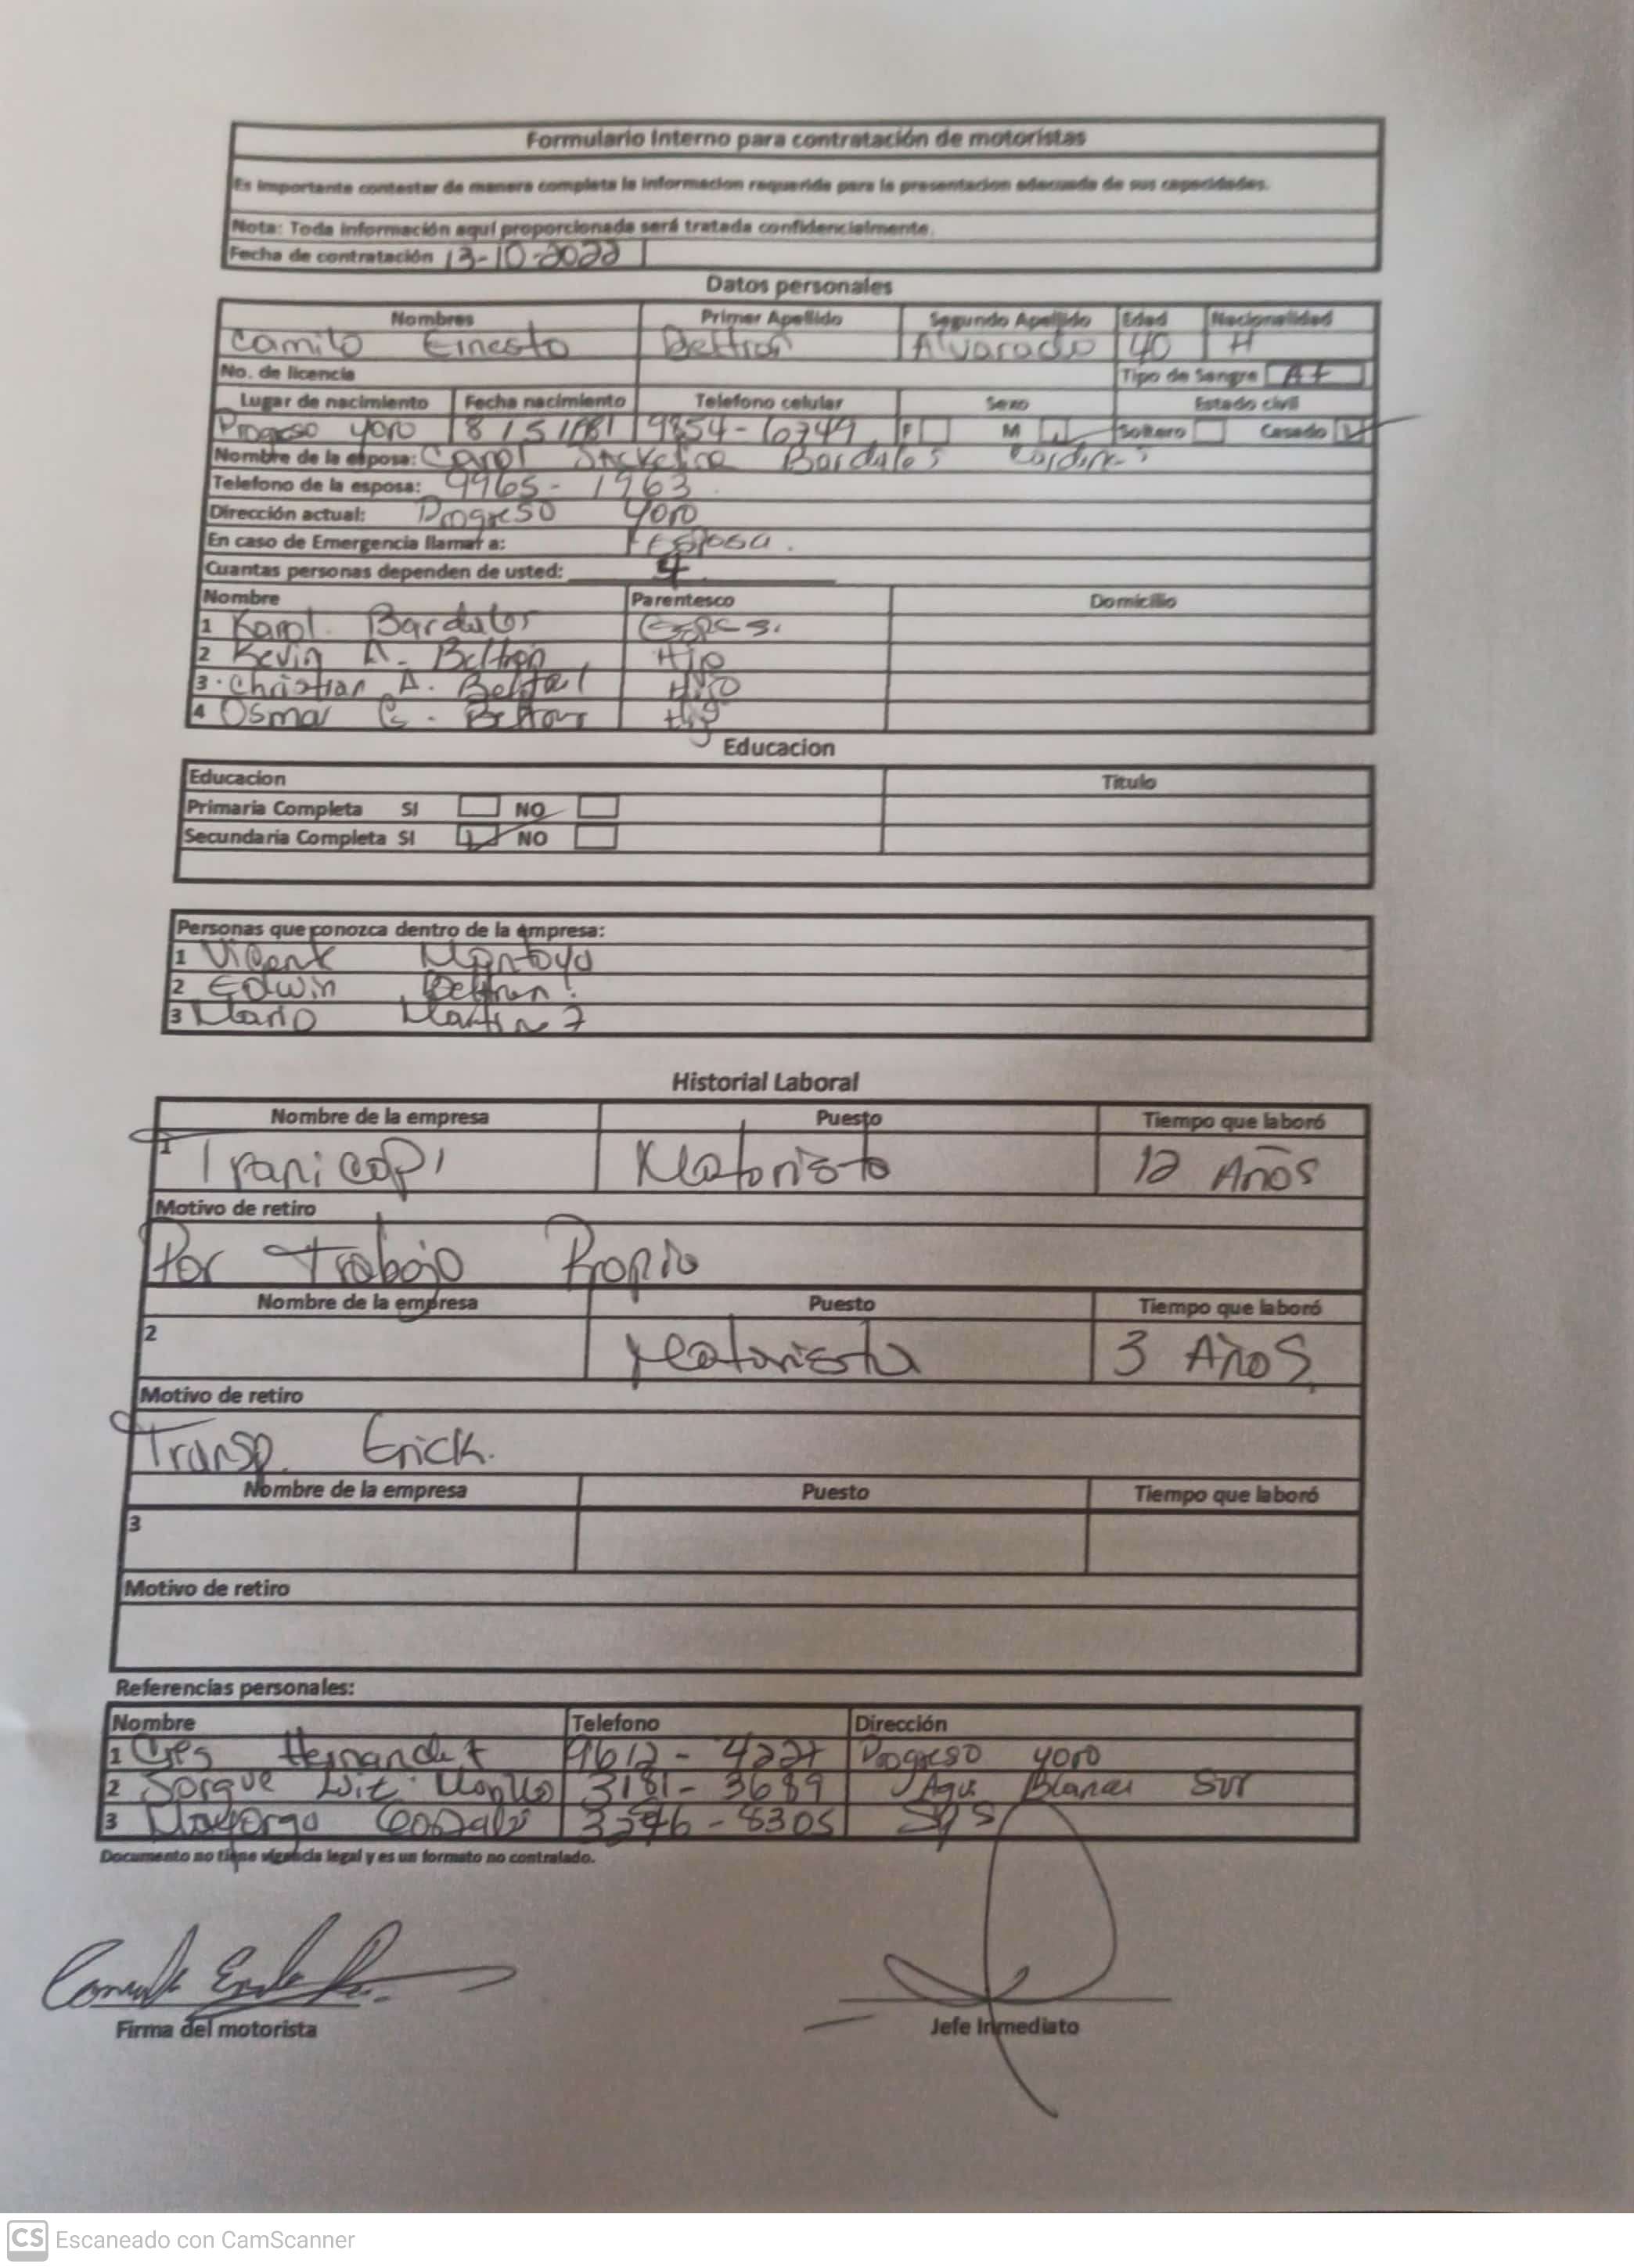 Formulario Interno para contratación de motoristas
Es importante contestar de manera completa la informacion requerida para la presentacion adecuada de sus capacidades.
Nota: Toda información aquí proporcionada será tratada confidencialmente.
Fecha de contratación 13-10-2022
Datos personales
Nombres Primer Apellido Segundo Apellido Edad Nacionalidad
Camilo Ernesto Beltran Alvarado 40 H
No. de licencia Tipo de Sangre A+
Lugar de nacimiento Fecha nacimiento Telefono celular Sexo Estado civil
Progreso yoro 9854-6749 F M Soltero Casado
Nombre de la esposa: Carol Bardales
Telefono de la esposa: 9965-1963
Dirección actual: Progreso yoro
En caso de Emergencia llamar a: Esposa.
Cuantas personas dependen de usted: 4
Nombre Parentesco Domicilio
1 Karol
2 Kevin A. Beltran Hijo
3 Christian A. Hijo
4 Osmar Hijo
Educacion
Educacion Titulo
Primaria Completa SI NO
Secundaria Completa SI NO
Personas que conozca dentro de la empresa:
1 Montoya
2 Edwin Beltran
3 Mario
Historial Laboral
Nombre de la empresa Puesto Tiempo que laboró
1 Motorista 12 Años
Motivo de retiro
Por Trabajo Propio
Nombre de la empresa Puesto Tiempo que laboró
2 Motorista 3 Años
Motivo de retiro
Transp. Erick.
Nombre de la empresa Puesto Tiempo que laboró
3
Motivo de retiro
Referencias personales:
Nombre Telefono Dirección
1 Hernandez Progreso yoro
2 3181-3689 Agua Blanca Sur
3 SPS
Documento no tiene vigencia legal y es un formato no contralado.
Firma del motorista Jefe Inmediato
CS Escaneado con CamScanner